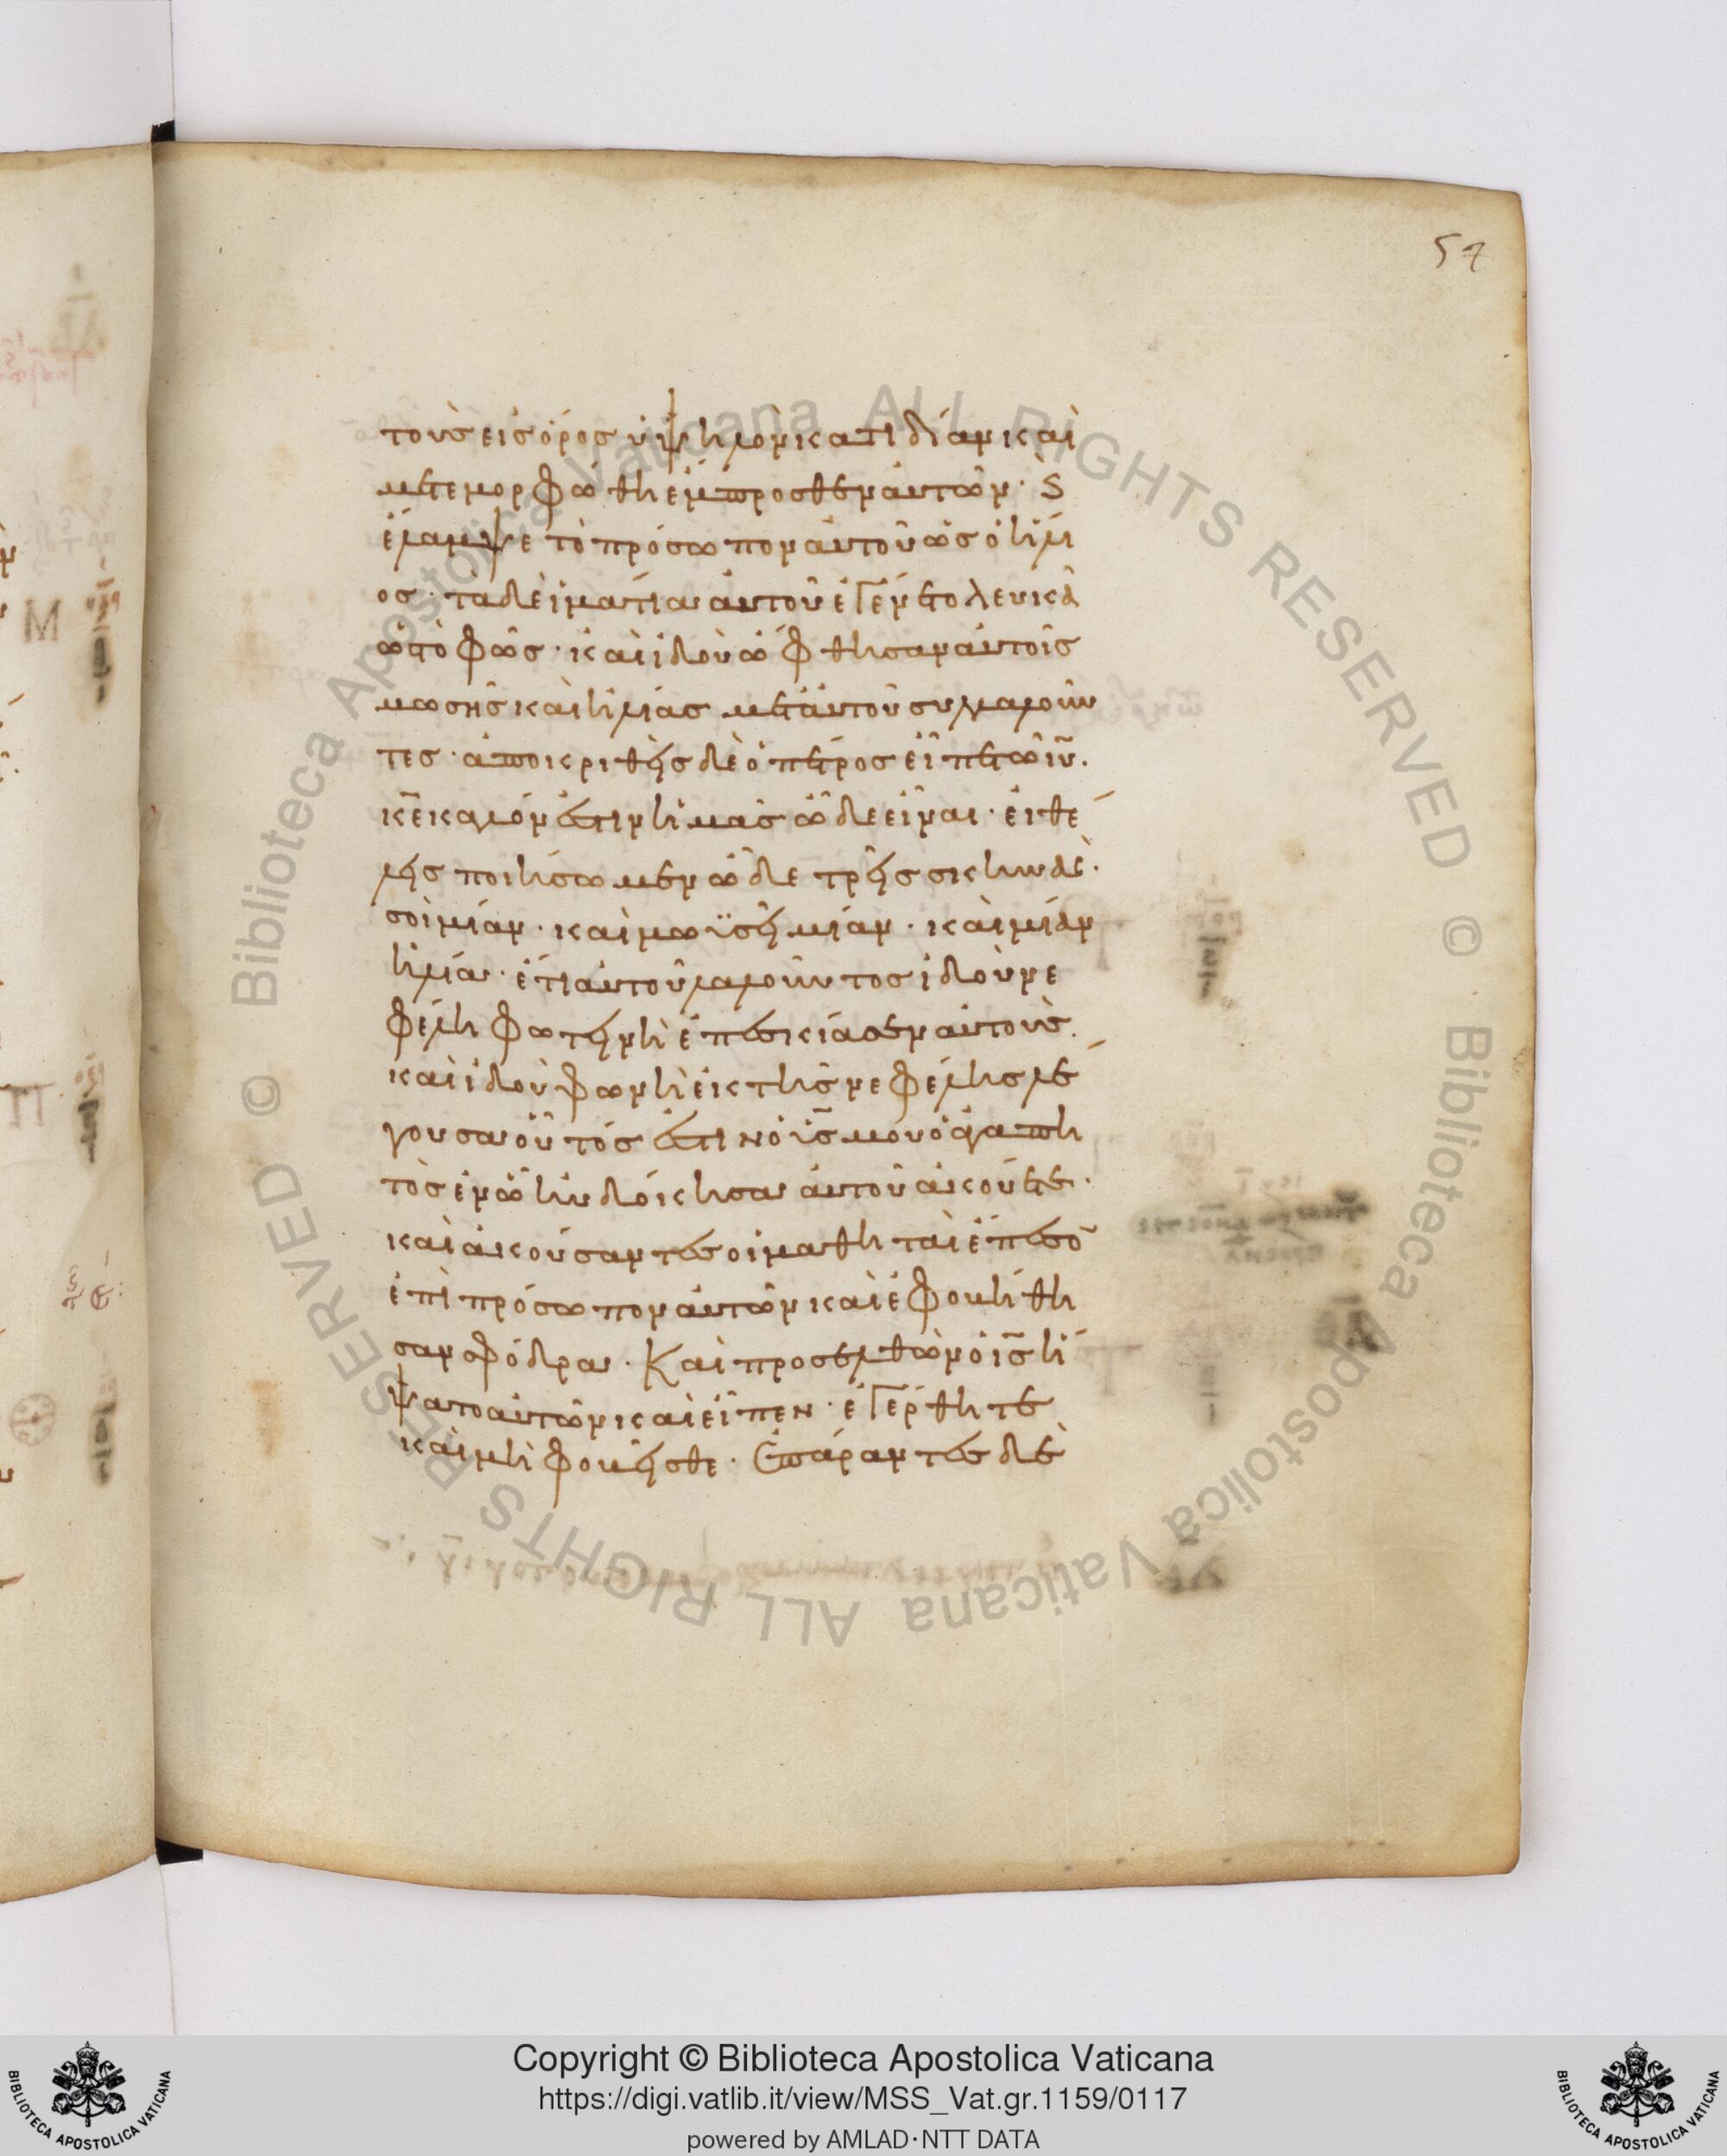 57
τοὺς εἰς ὄρος ὑψηλὸν κατιδίαν καὶ
μετεμορφώθη ἔμπροσθεν αὐτῶν· Ϛ
ἔλαμψε τὸ πρόσωπον αὐτοῦ ὡς ὁ ἥλι
ος· τὰ δὲ ἱμάτια αὐτοῦ ἐγένετο λευκὰ
ὡς τὸ φῶς· καὶ ἰδοὺ ὤφθησαν αὐτοῖς
μωσῆς καὶ ἠλίας μετ' αὐτοῦ συλλαλοῦν
τες· ἀποκριθεὶς δὲ ὁ πέτρος εἶπε τῶ ιῦ.
κε̄ καλόν ἐστιν ἡμᾶς ὧδε εἶναι· εἰ θέ
λεις ποιήσωμεν ὧδε τρεῖς σκηνάς·
σοὶ μίαν· καὶ μωϋσεῖ μίαν· καὶ μίαν
ἠλία· ἔτι αὐτοῦ λαλοῦντος ἰδοὺ νε
φέλη φωτεινὴ ἐπεσκίασεν αὐτοὺς.
καὶ ἰδοὺ φωνὴ ἐκ τῆς νεφέλης λέ
γουσα οὗτός ἐστιν ὁ ὑς̄ μου ὁ ἀγαπη
τὸς ἐν ᾧ ηὐδόκησα αὐτοῦ ἀκούετε·
καὶ ἀκούσαντες οἱ μαθηταὶ ἔπεσο̄
ἐπὶ πρόσωπον αὐτῶν καὶ ἐφοβήθη
σαν σφόδρα· Καὶ προσελθὼν ὁ ις̄ ἥ
ψατο αὐτῶν καὶ εἶπεν· ἐγέρθητε
καὶ μὴ φοβεῖσθε· Ἐπάραντες δὲ
Copyright © Biblioteca Apostolica Vaticana
https://digi.vatlib.it/view/MSS_Vat.gr.1159/0117
powered by AMLAD·NTT DATA
BIBLIOTECA APOSTOLICA VATICANA
BIBLIOTECA APOSTOLICA VATICANA
© Biblioteca Apostolica Vaticana ALL RIGHTS RESERVED
© Biblioteca Apostolica Vaticana ALL RIGHTS RESERVED